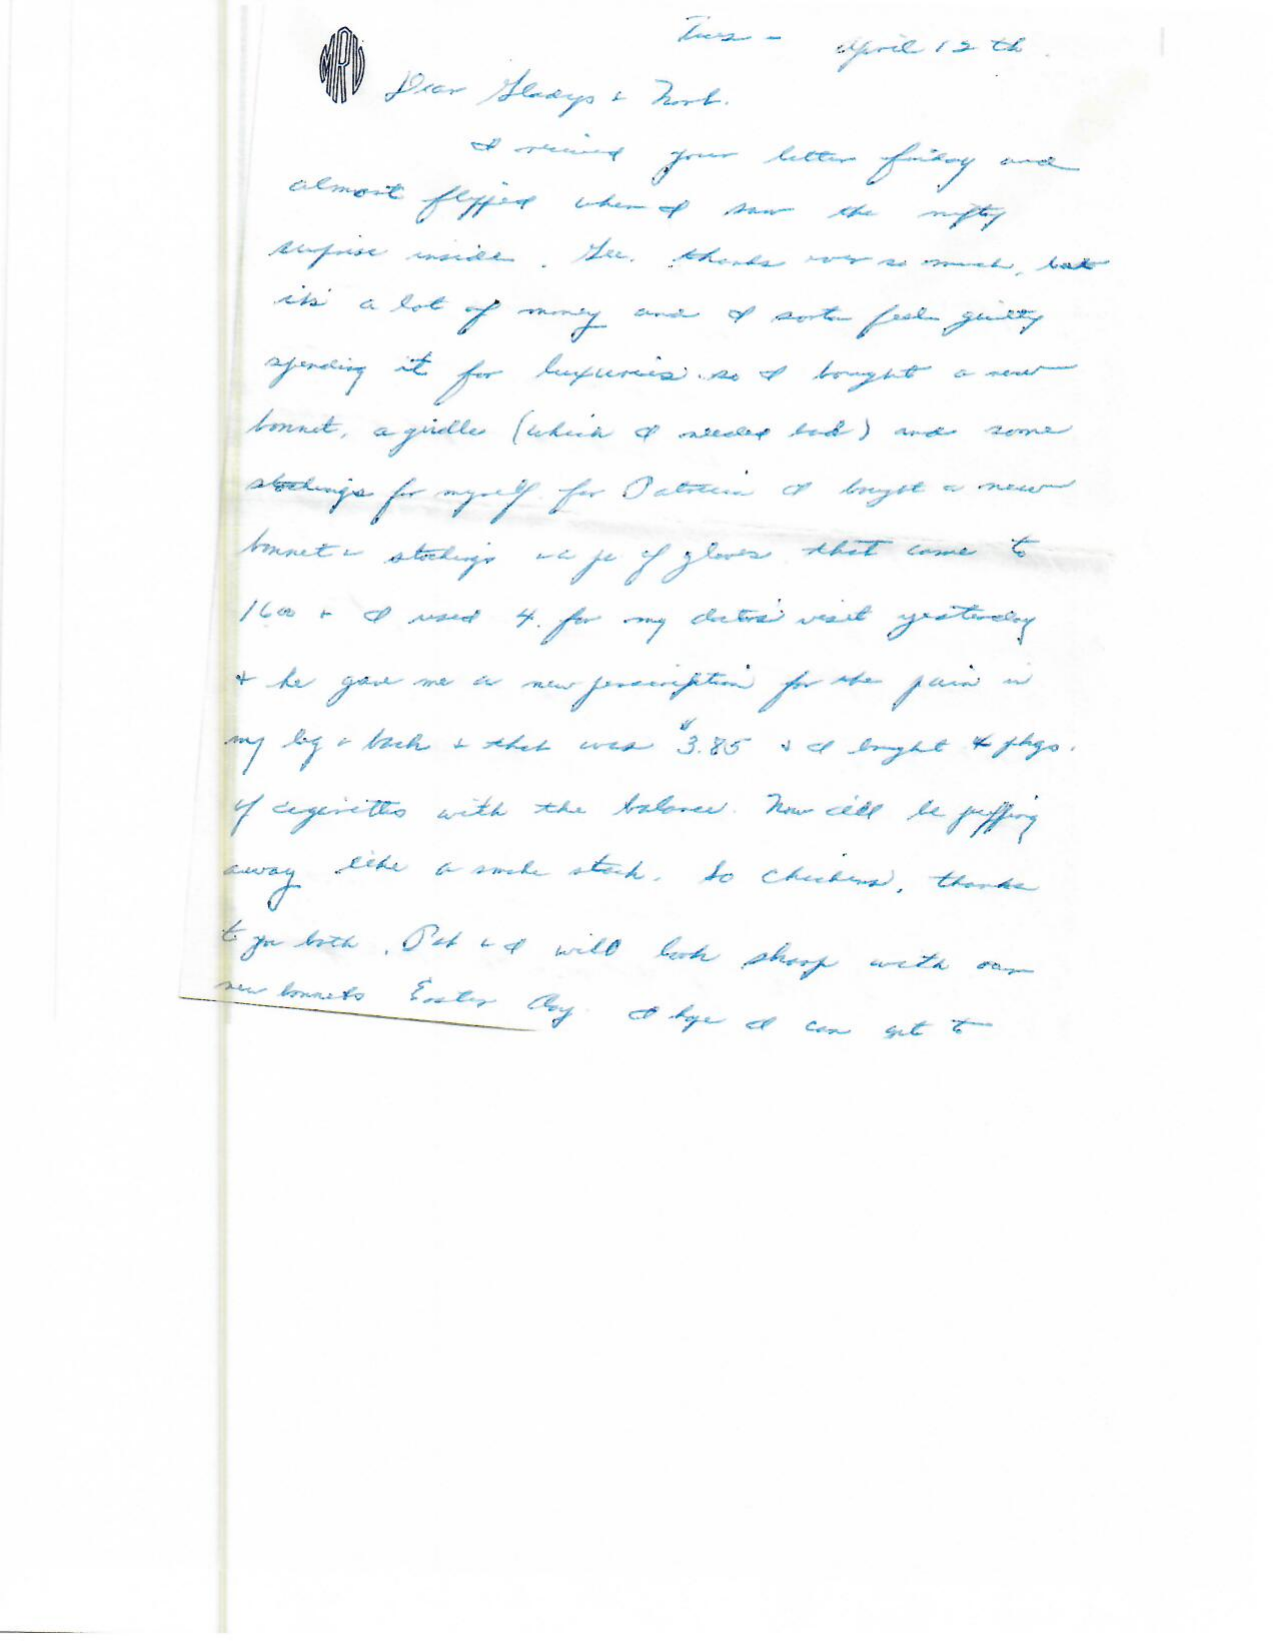 Tues - April 12th.
MRD
Dear Gladys & Norb.
I received your letter friday and
almost flipped when I saw the nifty
surprise inside. Gee. thanks ever so much, but
it's a lot of money and I sorta feel guilty
spending it for luxuries. so I bought a new
bonnet, a girdle (which I needed bad) and some
stockings for myself. for Patricia I bought a new
bonnet & stockings & a pr of gloves that came to
16 00 & I used 4. for my doctors visit yesterday
& he gave me a new perscription for the pain in
my leg & back & that was $3.85 & I bought 4 pkgs.
of cigerettes with the balance. Now I'll be puffing
away like a smoke stack. So chickens, thanks
to you both. Pat & I will look sharp with our
new bonnets Easter Day. I hope I can get to